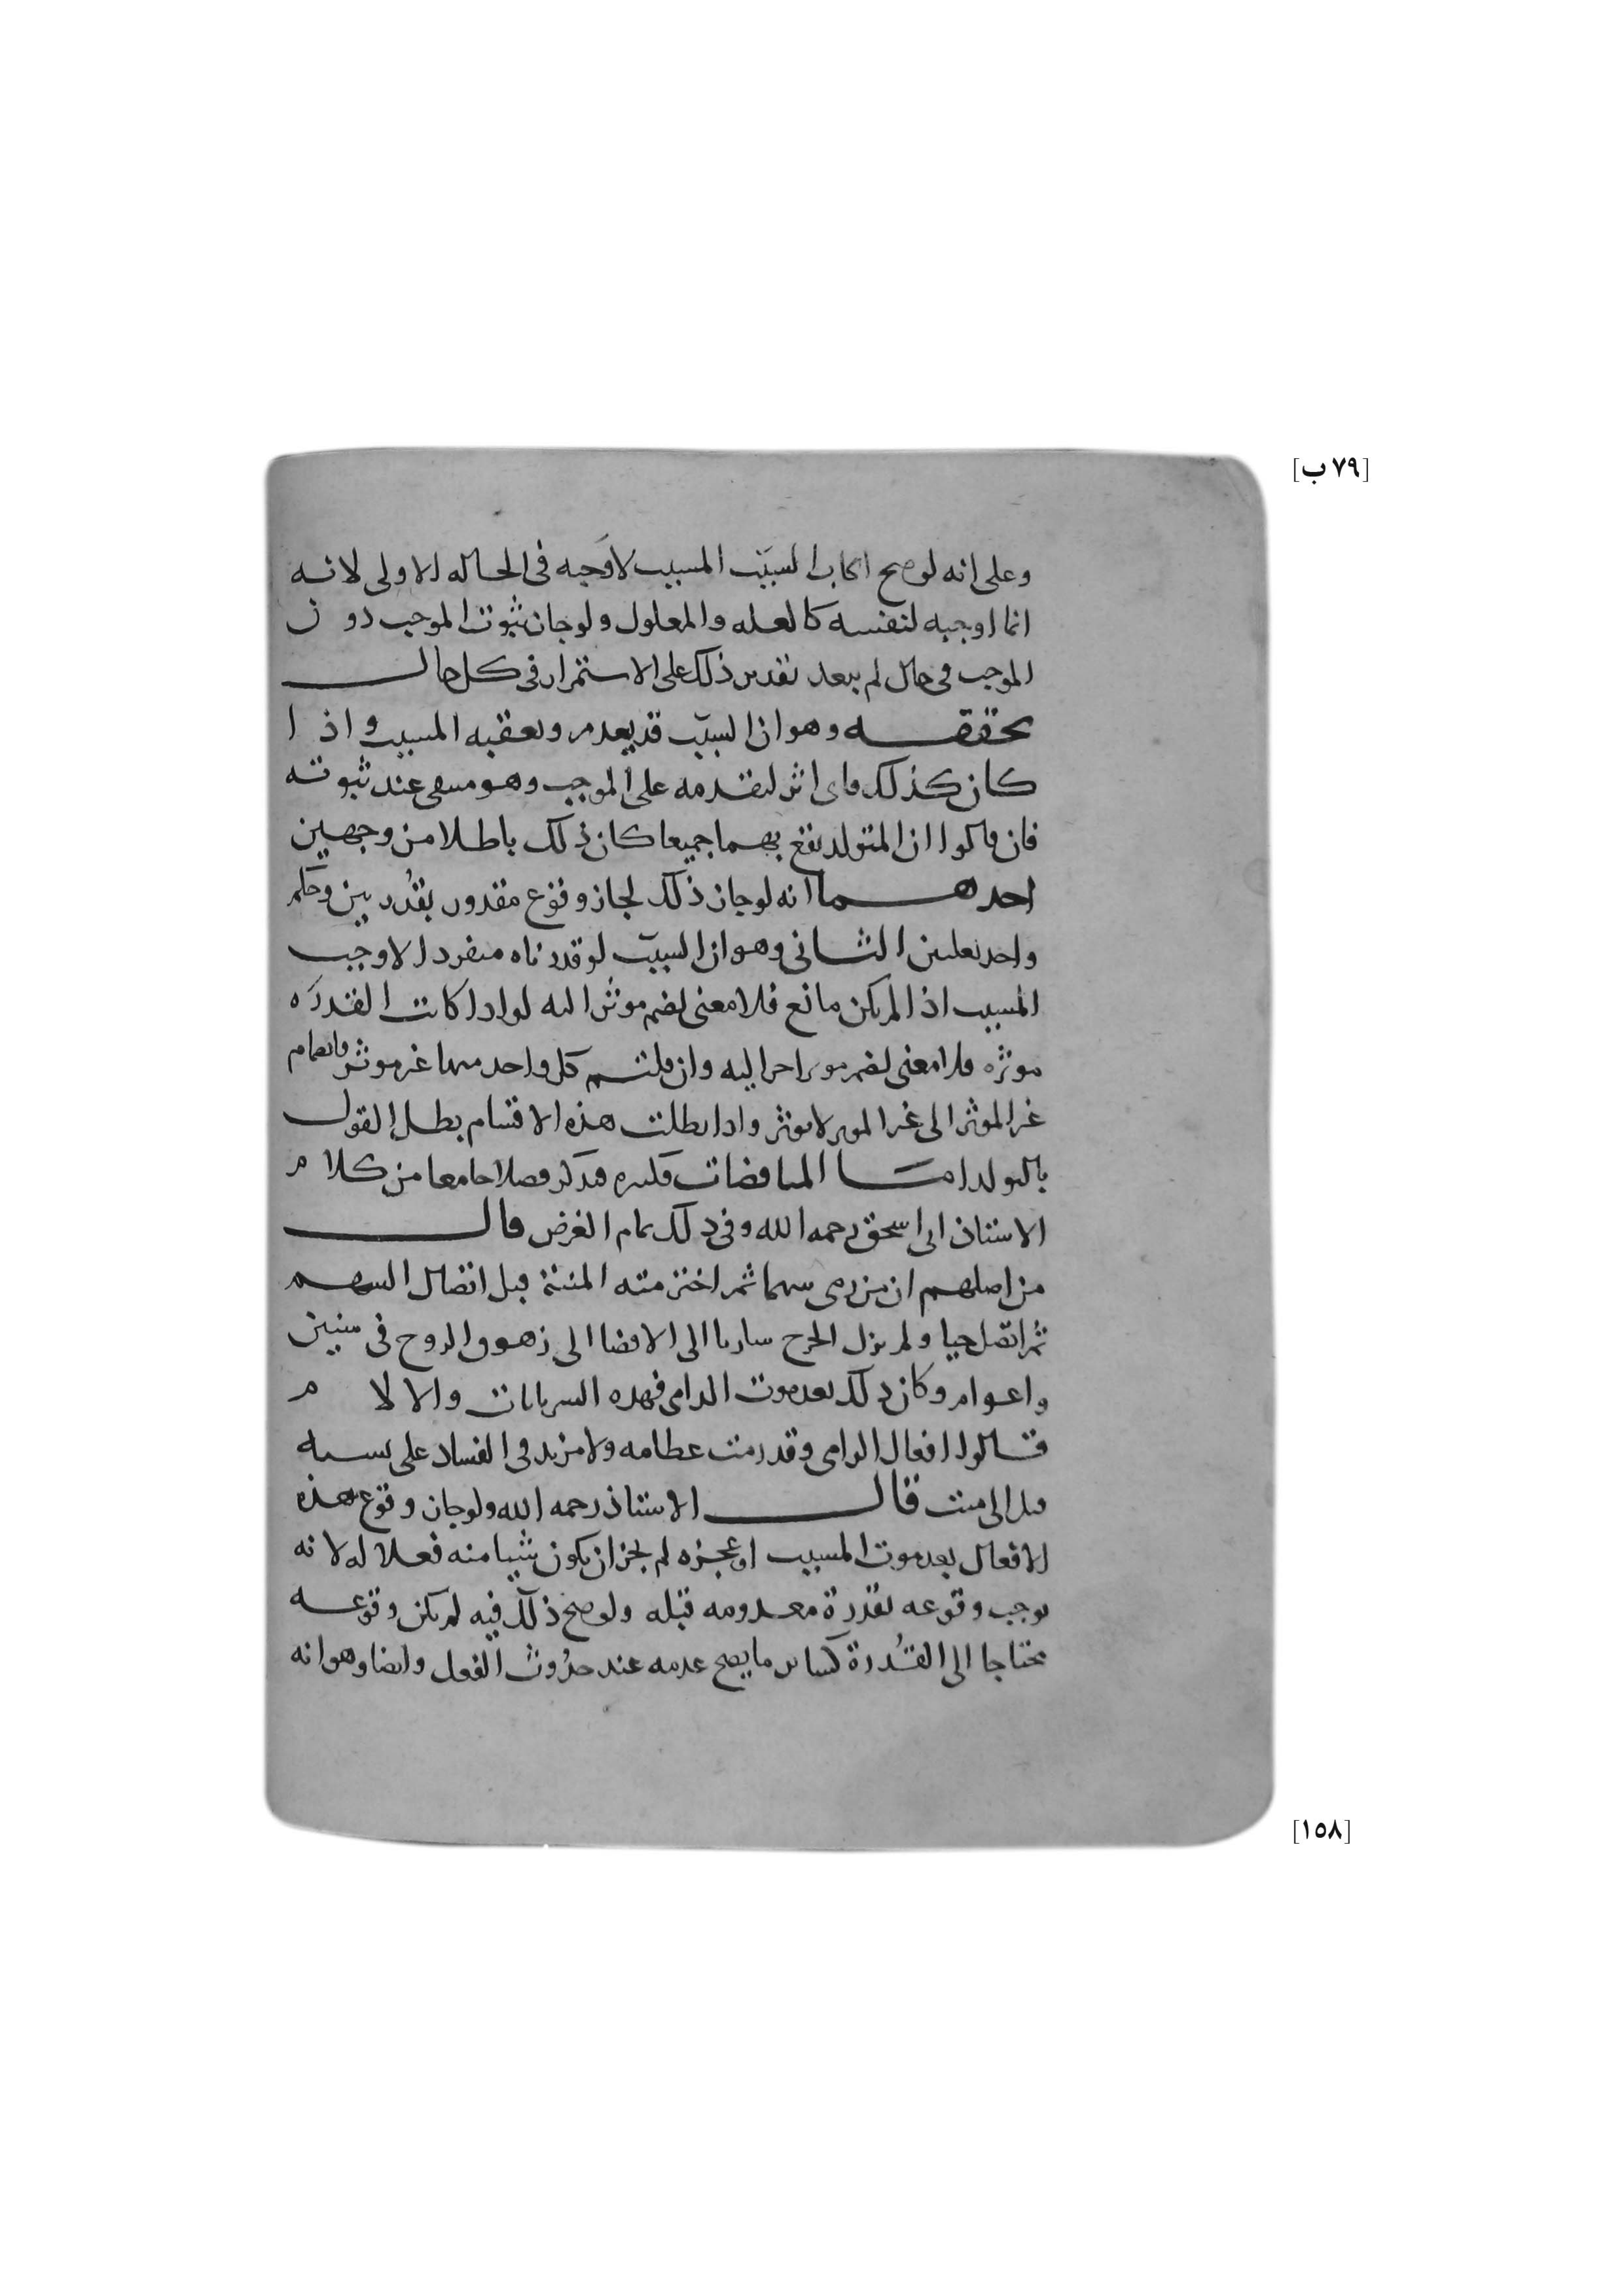 [٧٩ ب]
وعلى انه لو صح ايجاب السبب المسبب لاوجبه في الحاله الاولى لانه
انما اوجبه لنفسه كالعله والمعلول ولو جاز ثبوت الموجب دون
الموجب في حال لم يبعد تقدير ذلك على الاستمرار في كل حال
تحققه وهو ان السبب قد يعدم ويعقبه المسبب واذا
كان كذلك فاي اثر لتقدمه على الموجب وهو منتفي عند ثبوته
فان قالوا ان المتولد يقع بهما جميعا كان ذلك باطلا من وجهين
احدهما انه لو جاز ذلك لجاز وقوع مقدور بقدرتين وحكم
واحد بعلتين الثاني وهو ان السبب لو قدرناه منفردا لاوجب
المسبب اذا لم يكن مانع فلا معنى لضم موثر اليه اذا كانت القدره
موثره فلا معنى لضم موثر اخر اليه وان قلتم كل واحد منهما غير موثر فانضمام
غير الموثر الى غير الموثر لا يوثر واذا بطلت هذه الاقسام بطل القول
بالتولد اما المناقضات فكثيره فنذكر فصلا جامعا من كلام
الاستاذ ابي اسحق رحمه الله وفي ذلك تمام الغرض قال
من اصلهم ان من رمى سهما ثم اخترمته المنية قبل اتصال السهم
ثم اتصل حيا ولم يزل الجرح ساريا الى الافضا الى زهوق الروح في سنين
واعوام وكان ذلك بعد موت الرامي فهذه السرايات والالام
قالوا افعال الرامي وقد رمت عظامه ولا مزيد في الفساد على نسبه
قتل الى ميت قال الاستاذ رحمه الله ولو جاز وقوع هذه
الافعال بعد موت المسبب او عجزه لم يجز ان يكون شيا منه فعلا له لانه
يوجب وقوعه بقدرة معدومه قبله ولو صح ذلك فيه لم يكن وقوعه
محتاجا الى القدرة كساير ما يصح عدمه عند حدوث الفعل وايضا وهو انه
[١٥٨]